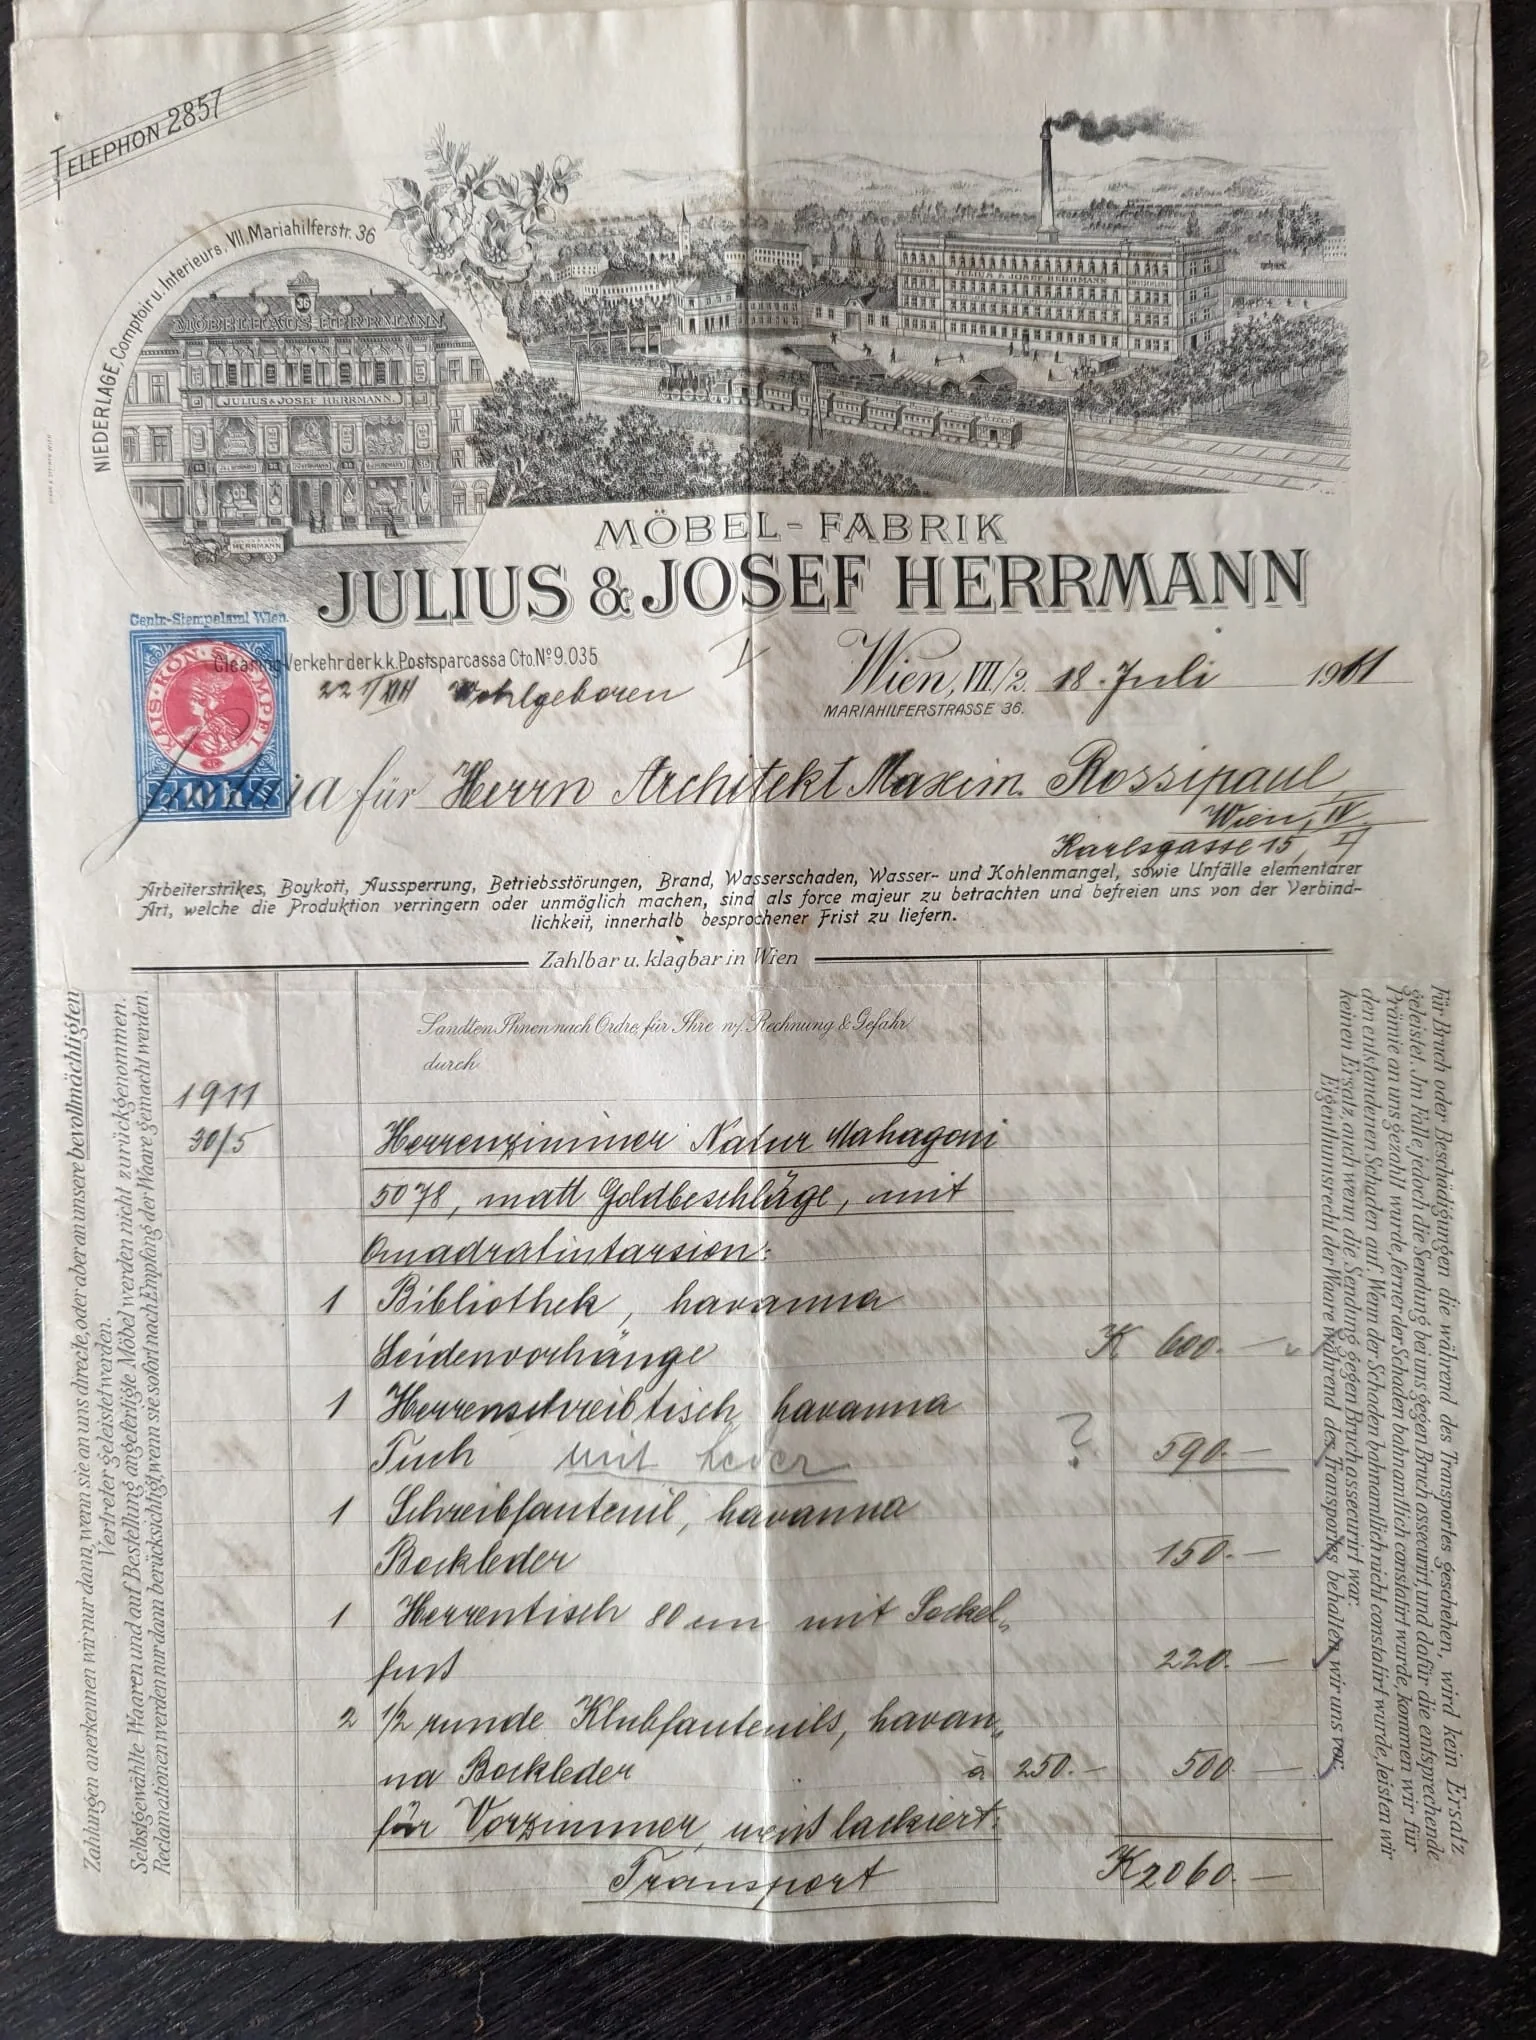 TELEPHON 2857
NIEDERLAGE, Comptoir u. Interieurs, VII. Mariahilferstr. 36
36
MÖBELHAUS HERRMANN
JULIUS & JOSEF HERRMANN.
HERRMANN
JULIUS & JOSEF HERRMANN
MÖBEL-FABRIK
JULIUS & JOSEF HERRMANN
Centr.-Stempelamt Wien.
KAIS. KÖN. STEMPEL
Clearing-Verkehr der k.k. Postsparcassa Cto. No 9.035
Wien, VII./2. 18. Juli 1911
MARIAHILFERSTRASSE 36.
Wohlgeboren
für Herrn Architekt Maxim. Rossipaul,
Wien, IV.
Karlsgasse 15,
Arbeiterstrikes, Boykott, Aussperrung, Betriebsstörungen, Brand, Wasserschaden, Wasser- und Kohlenmangel, sowie Unfälle elementarer
Art, welche die Produktion verringern oder unmöglich machen, sind als force majeur zu betrachten und befreien uns von der Verbind-
lichkeit, innerhalb besprochener Frist zu liefern.
Zahlbar u. klagbar in Wien
Sandten Ihnen nach Ordre, für Ihre w/. Rechnung & Gefahr
durch
1911
30/5 Herrenzimmer Natur Mahagoni
5078, matt Goldbeschläge, mit
Quadratintarsien:
1 Bibliothek, havanna
Seidenvorhänge K 600.—
1 Herrenschreibtisch, havanna
Tuch mit Leder ? 590.—
1 Schreibfauteuil, havanna
Bockleder 150.—
1 Herrentisch 80 cm mit Sockel-
fuß 220.—
2 1/2 runde Klubfauteuils, havan-
na Bockleder à 250.— 500.—
für Vorzimmer, weiß lackiert:
Transport K 2060.—
Zahlungen anerkennen wir nur dann, wenn sie an uns directe, oder aber an unsere bevollmächtigten
Vertreter geleistet werden.
Selbstgewählte Waaren und auf Bestellung angefertigte Möbel werden nicht zurückgenommen.
Reclamationen werden nur dann berücksichtigt, wenn sie sofort nach Empfang der Waare gemacht werden.
Für Bruch oder Beschädigungen die während des Transportes geschehen, wird kein Ersatz
geleistet. Im Falle jedoch die Sendung bei uns gegen Bruch assecurirt, und dafür die entsprechende
Prämie an uns gezahlt wurde, ferner der Schaden bahnamtlich constatirt wurde, kommen wir für
den entstandenen Schaden auf. Wenn der Schaden bahnamtlich nicht constatirt wurde, leisten wir
keinen Ersatz, auch wenn die Sendung gegen Bruch assecurirt war.
Eigenthumsrecht der Waare während des Transportes behalten wir uns vor.